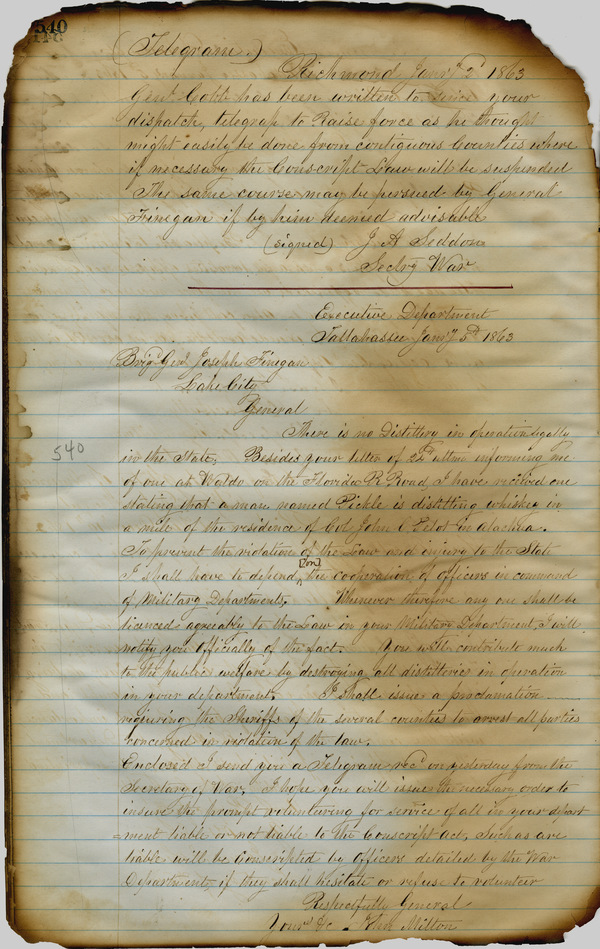 540
(Telegram.)
Richmond Janry 2d 1863
Genl. Cobb has been written to since your
dispatch, telegrap to Raise force as he thought
might easily be done from contiguous Counties where
if necessary the Conscript Law will be suspended
The same course may be persued by General
Finegan if by him deemed advisable
(signed) J A Seddon
Sectry War
Executive Department
Tallahassee Jany 5th 1863
Brig Genl Joseph Finegan
Lake City
General
There is no Distillery in operation legally
in the State, Besides your letter of 22d ultimo informing me
of one at Waldo on the Florida R. Road, I have received one
stating that a man named Pickle is distilling whiskey in
a mile of the residence of Col John C Pelot in Alachua.
540
To prevent the violation of the Law and injury to the State
[on]
I shall have to depend, the cooperation of officers in command
of Military Departments. Whenever therefore any one shall be
licenced agreeably to the Law in your Military Department, I will
notify you officially of the fact. You will contribute much
to the public welfare by destroying all distilleries in operation
in your department. I shall issue a proclamation
requiring the Sheriffs of the several counties to arrest all parties
concerned in violation of the law.
Enclosed I send you a Telegram recd on yesterday from the
Secretary of War, I hope you will issue the necessary order to
insure the prompt volunteering for service of all in your depart
=ment liable or not liable to the Conscript act, Such as are
liable will be Conscripted by Officers detailed by the War
Department, if they shall hesitate or refuse to volunteer
Respectfully General
Your &c John Milton